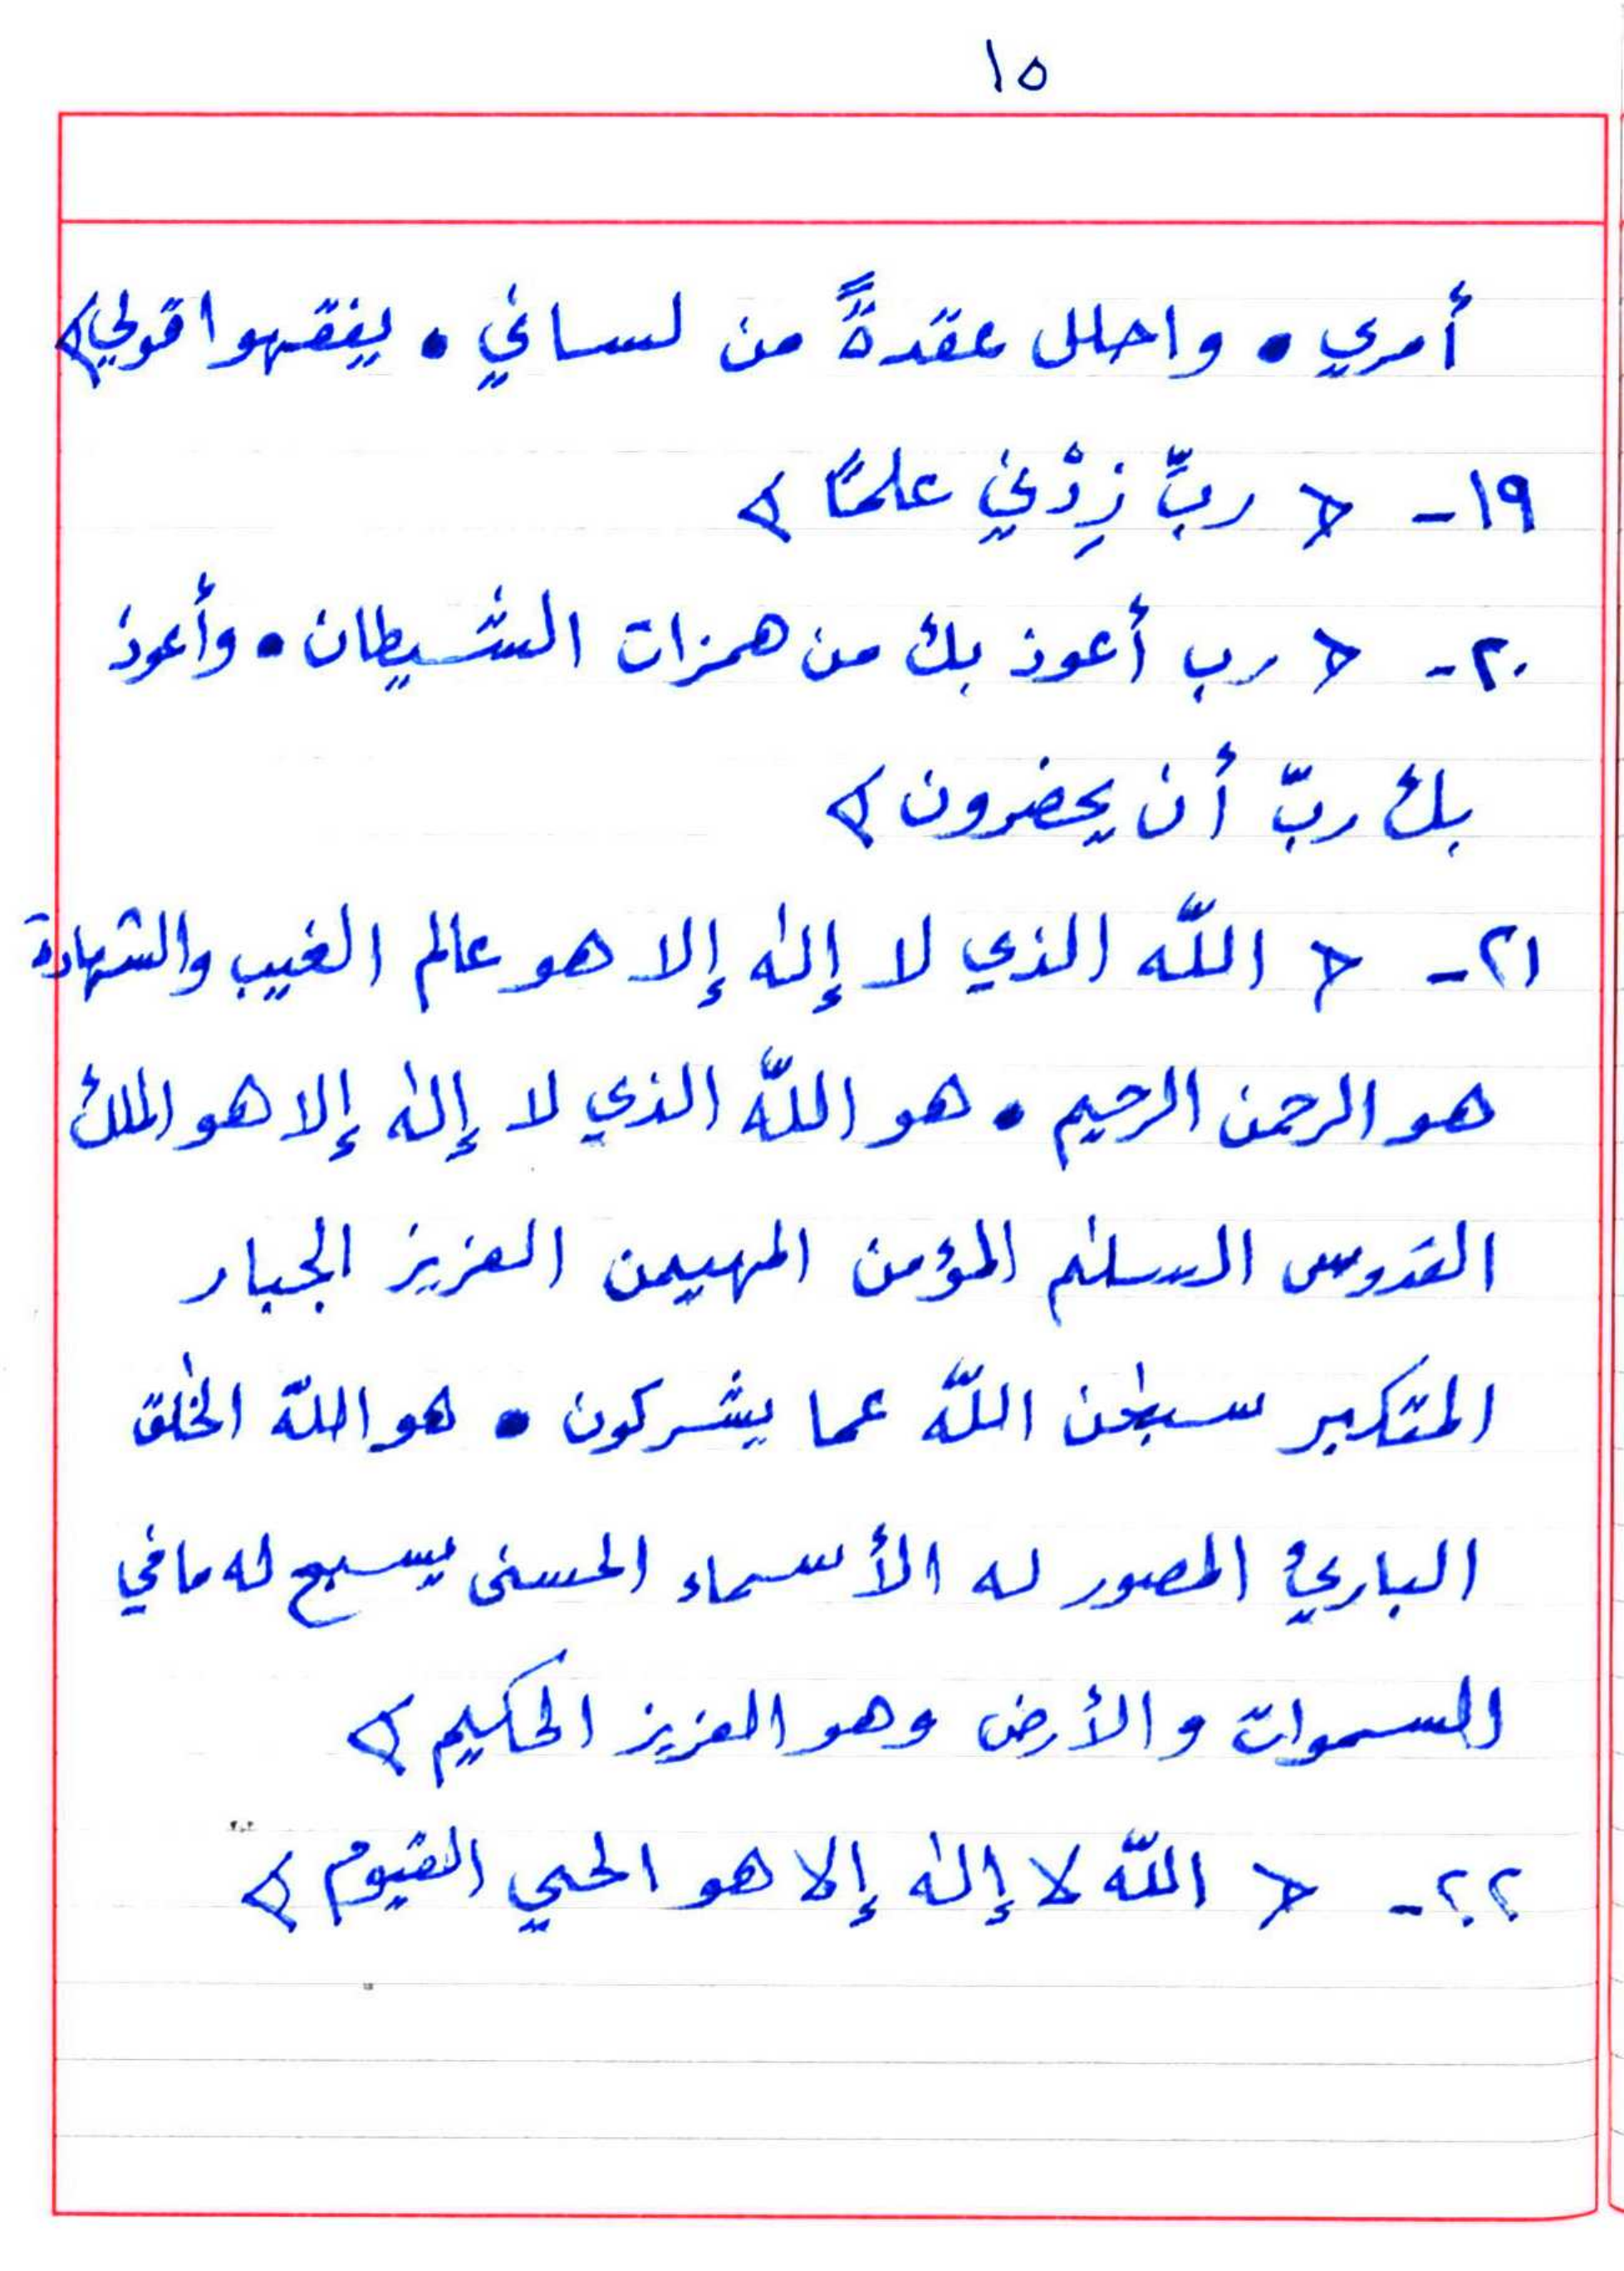 ١٥
أمري • واحلل عقدةً من لساني • يفقهوا قولي﴾
١٩- ﴿ ربِّ زِدْني علمًا ﴾
٢٠- ﴿ رب أعوذ بك من همزات الشيطان • وأعوذ
بك ربّ أن يحضرون ﴾
٢١- ﴿ اللّه الذي لا إلٰه إلا هو عالم الغيب والشهادة
هو الرحمن الرحيم • هو اللّه الذي لا إلٰه إلا هو الملك
القدوس السلٰم المؤمن المهيمن العزيز الجبار
المتكبر سبحٰن اللّه عما يشركون • هو اللّه الخٰلق
الباريء المصور له الأسماء الحسنى يسبح له ما في
السموات والأرض وهو العزيز الحكيم ﴾
٢٢- ﴿ اللّه لا إلٰه إلا هو الحي القيوم ﴾